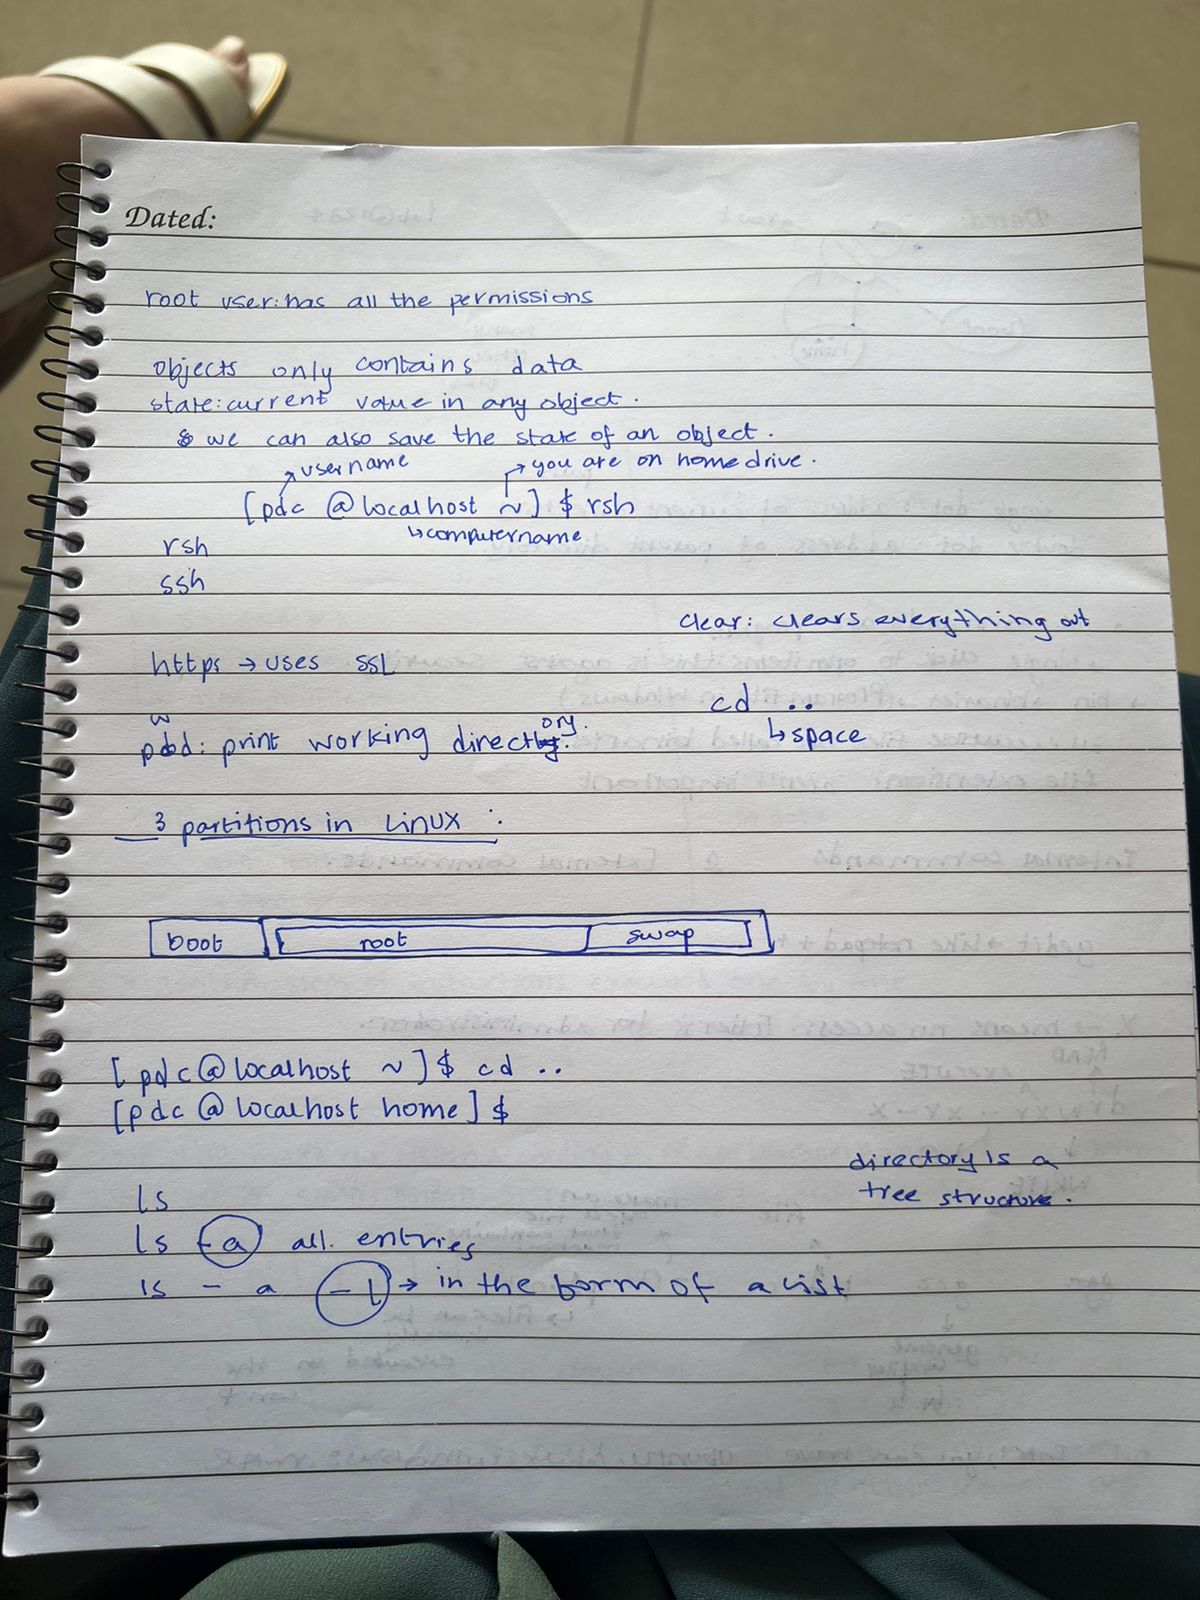 Dated:
root user: has all the permissions
objects only contains data
state: current value in any object.
we can also save the state of an object.
username
you are on home drive.
[pdc @localhost ~] $ rsh
computername
rsh
ssh
clear: clears everything out
https → uses SSL
cd ..
space
pwd: print working directory.
3 partitions in Linux :
boot root swap
[pdc@localhost ~]$ cd ..
[pdc@localhost home]$
directory is a
tree structure.
ls
ls -a all. entries
ls - a -l → in the form of a list